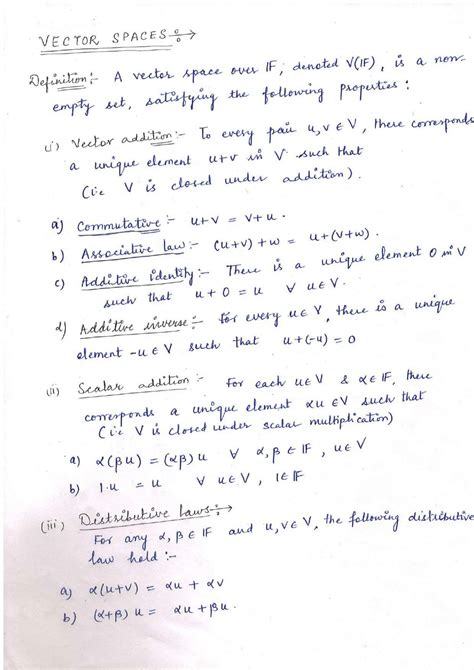 VECTOR SPACES ÷→
Definition :- A vector space over IF, denoted V(IF), is a non-
empty set, satisfying the following properties :
(i) Vector addition :- To every pair u, v ∈ V, there corresponds
a unique element u+v in V such that
(i.e V is closed under addition).
a) Commutative :- u+v = v+u.
b) Associative law :- (u+v)+w = u+(v+w).
c) Additive identity :- There is a unique element 0 in V
such that u+0 = u ∀ u ∈ V.
d) Additive inverse :- for every u ∈ V, there is a unique
element -u ∈ V such that u+(-u) = 0
(ii) Scalar addition :- For each u ∈ V & α ∈ IF, there
corresponds a unique element αu ∈ V such that
(i.e V is closed under scalar multiplication)
a) α(βu) = (αβ)u ∀ α, β ∈ IF, u ∈ V
b) 1·u = u ∀ u ∈ V, 1 ∈ IF
(iii) Distributive Laws ÷→
For any α, β ∈ IF and u, v ∈ V, the following distributive
law hold :-
a) α(u+v) = αu + αv
b) (α+β) u = αu + βu.